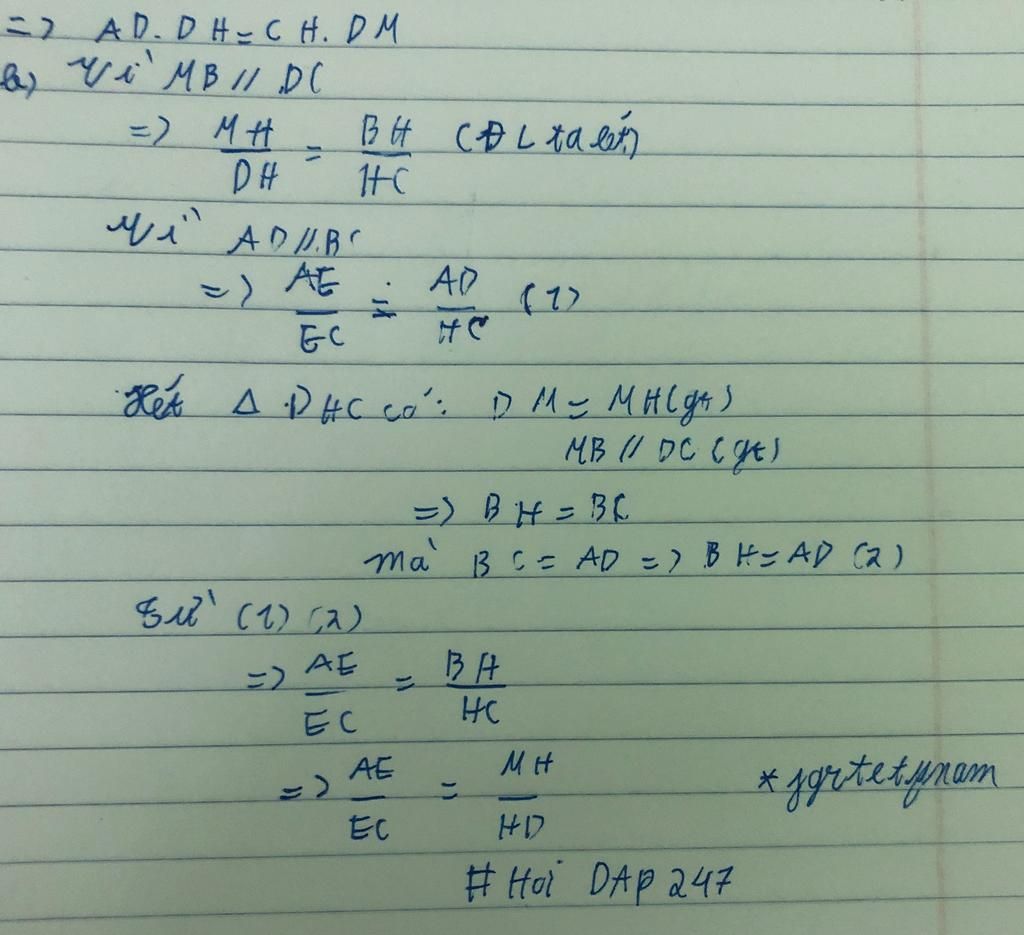 => AD.DH=CH.DM
b) Vì MB // DC
=> MH/DH = BH/HC (ĐL ta lét)
Vì AD//BC
=> AE/EC = AD/HC (1)
Xét Δ DHC có: DM = MH(gt)
MB // DC (gt)
=> BH = BC
mà BC = AD => BH = AD (2)
Từ (1) (2)
=> AE/EC = BH/HC
=> AE/EC = MH/HD
# Hoi DAP 247